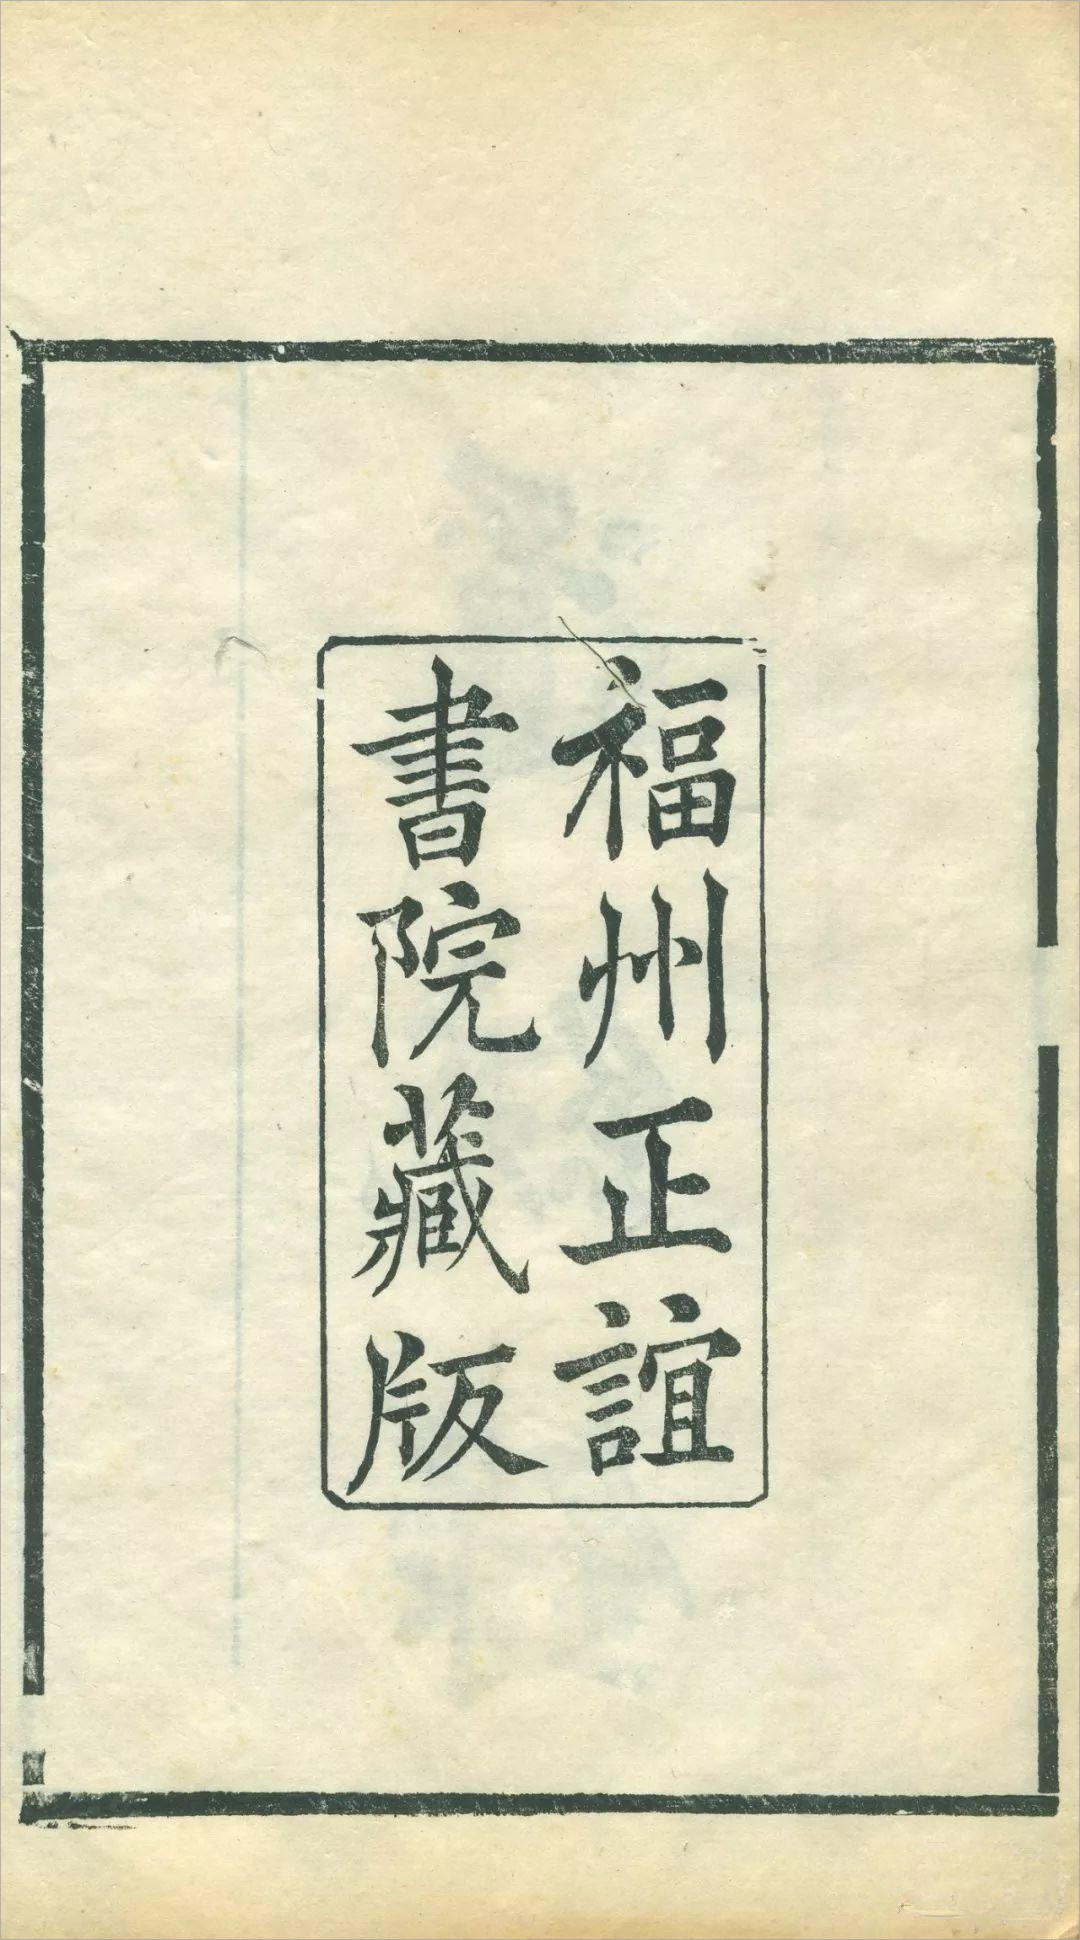 福州正誼
書院藏版